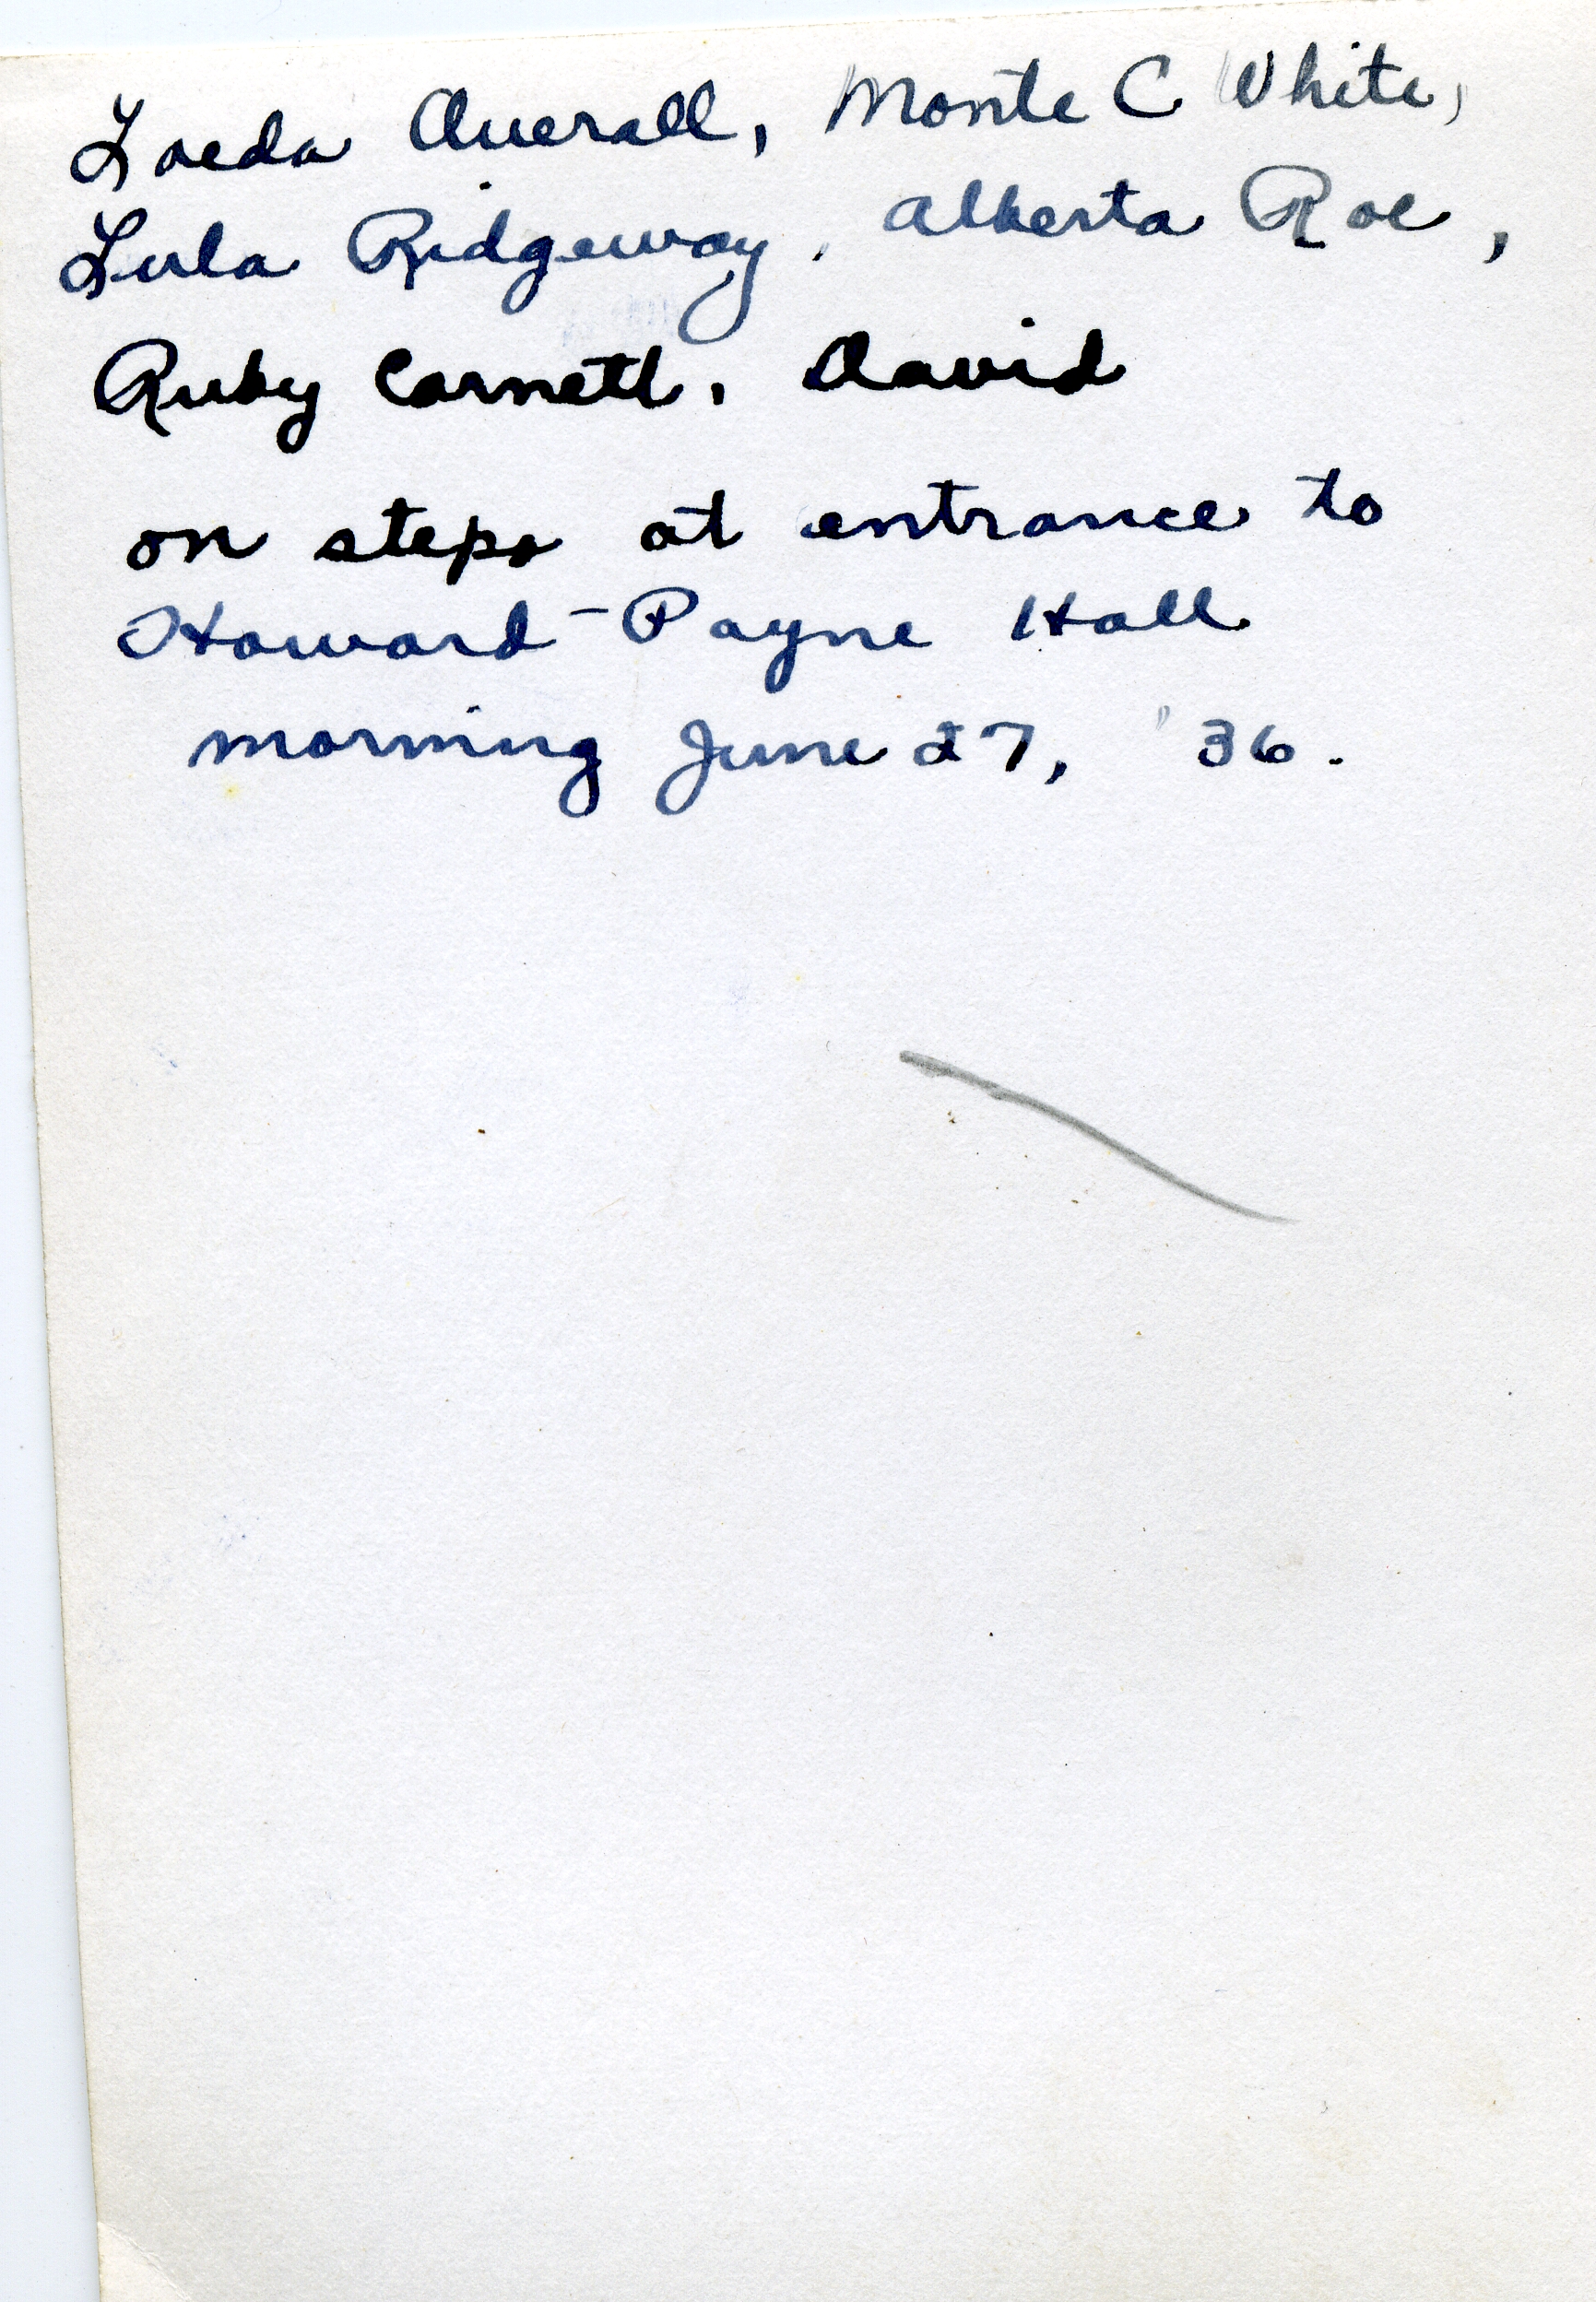 Loeda Overall, Monte C White,
Lula Ridgeway, Alberta Roe,
Ruby Carnett, David
on steps at entrance to
Howard-Payne Hall
morning June 27, '36.